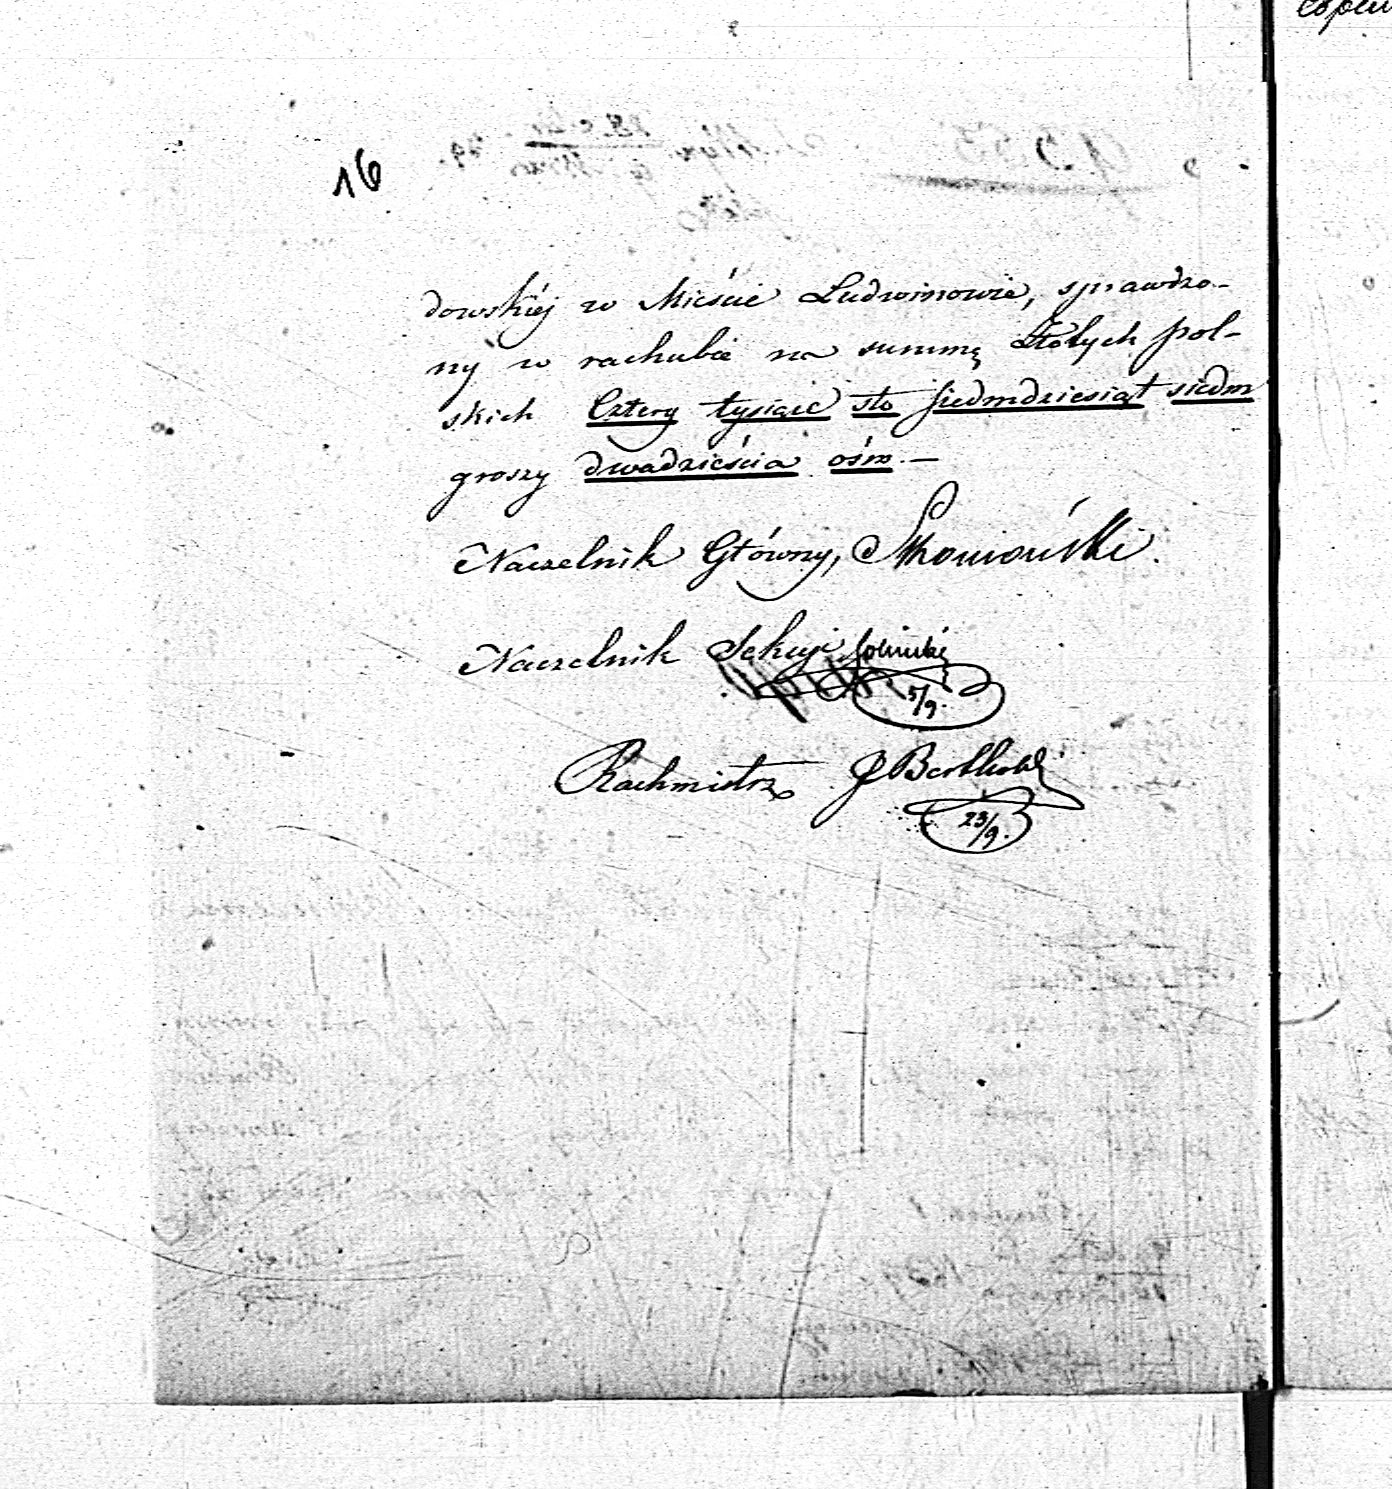 16
dowskiéj w Mieście Ludwinowie, sprawdzo-
ny w rachubie na summę Złotych pol-
skich Cztery tysiące sto siedmdziesiąt siedm
groszy dwadzieścia ośm. —
Naczelnik Główny,
Naczelnik Sekcji
5/9.
Rachmistrz J Berthold
23/9.